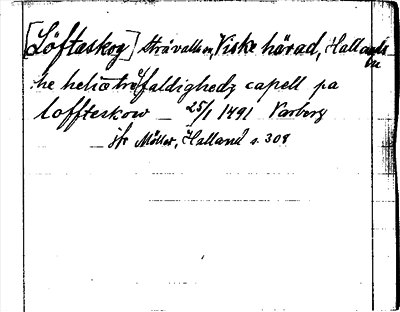 [Löftaskog] Stråvalla sn, Viske härad, Halland
he helie trefaldighedz capell pa
loffteskow — 25/1 1491 Varberg
— jfr Möller, Halland s. 308